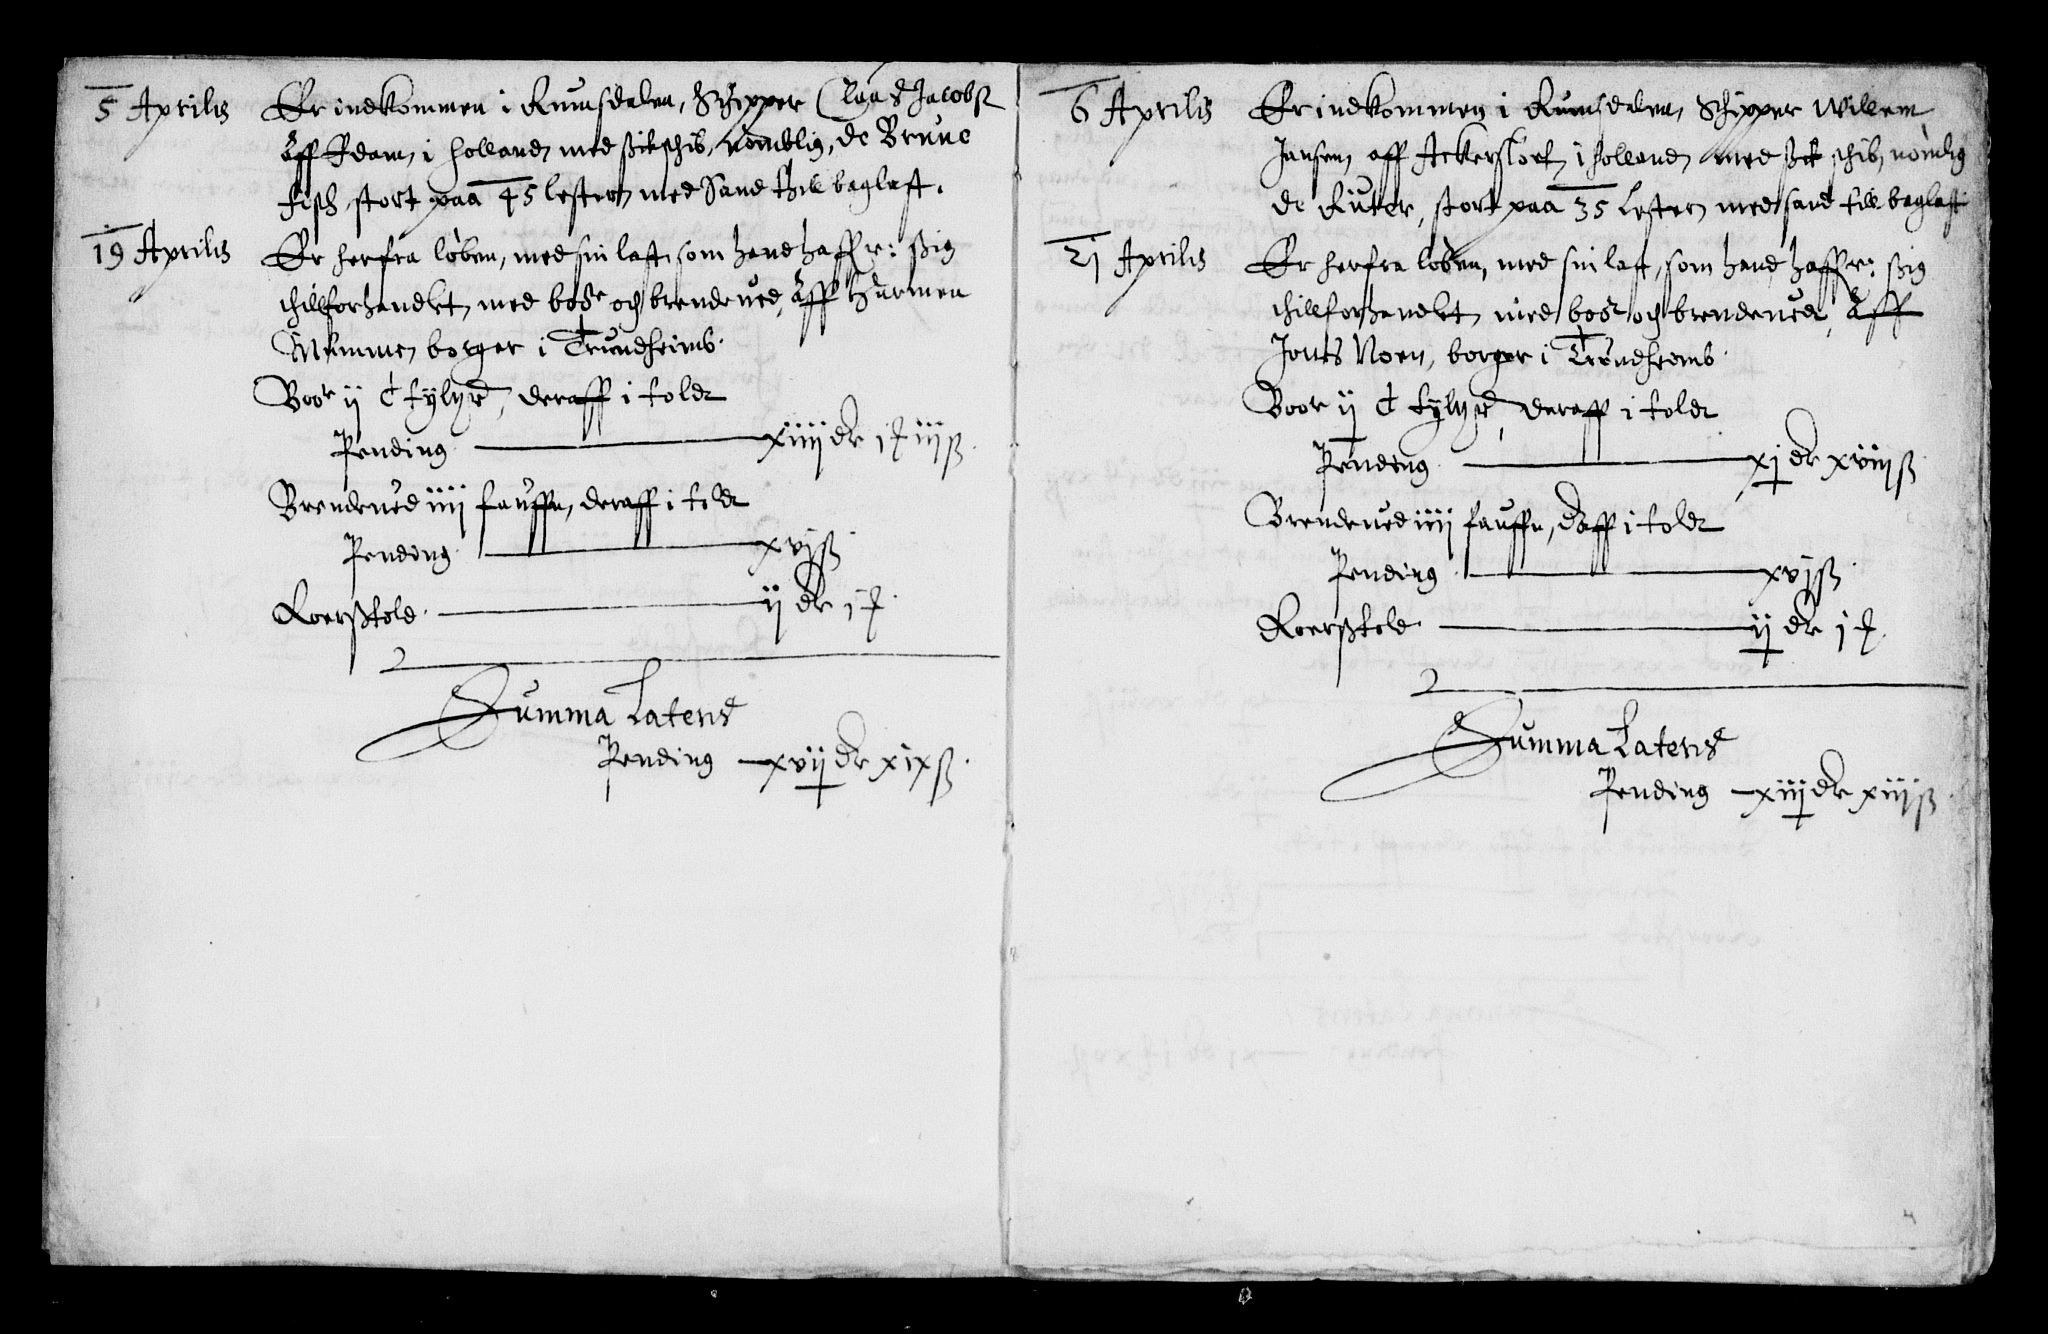 5 Aprilis Er indkommen i Rumsdalen, Schipper Claus Jacobsß
Aff Edam, i Holland, med ßit schib, nomblig, de Brune
fisch, stort paa 45 lester, med Sand thill baglast.
19 Aprilis Er herfra løben, med sin last, som hand haffr: ßig
thillforhandlet, med boer och brendeued, Aff Hermen
Mumme, borger i Trundheimb.
Boer ij C tylter, deraff i toldt
Pending xiiij dr j f iijß.
Brendeued iiij fauffn, deraff i toldt
Pending xvjß.
Roerßtold. ij dr j f.
Summa Lateris
Pending xvij dr xixß.
6 Aprilis Er indkommen i Rumsdalen, Schipper Willem
Jansen, aff Ackerslott, i Holland, med ßit schib, nomlig
de Ruter, stort paa 35 Lester, med sand till baglast
21 Aprilis Er herfra løben, med sin last, som hand, haffr: ßig
thillforhandlet, med boer och brendeued, Aff
Jonts Noen, borger i Trundheimb.
Boer ij C tylter, deraff i toldt
Pending xj dr xviijß.
Brendeued iiij fauffn, daff i toldt
Pending xvjß.
Roerßtold ij dr j f.
Summa Lateris
Pending xiiij dr xiijß.